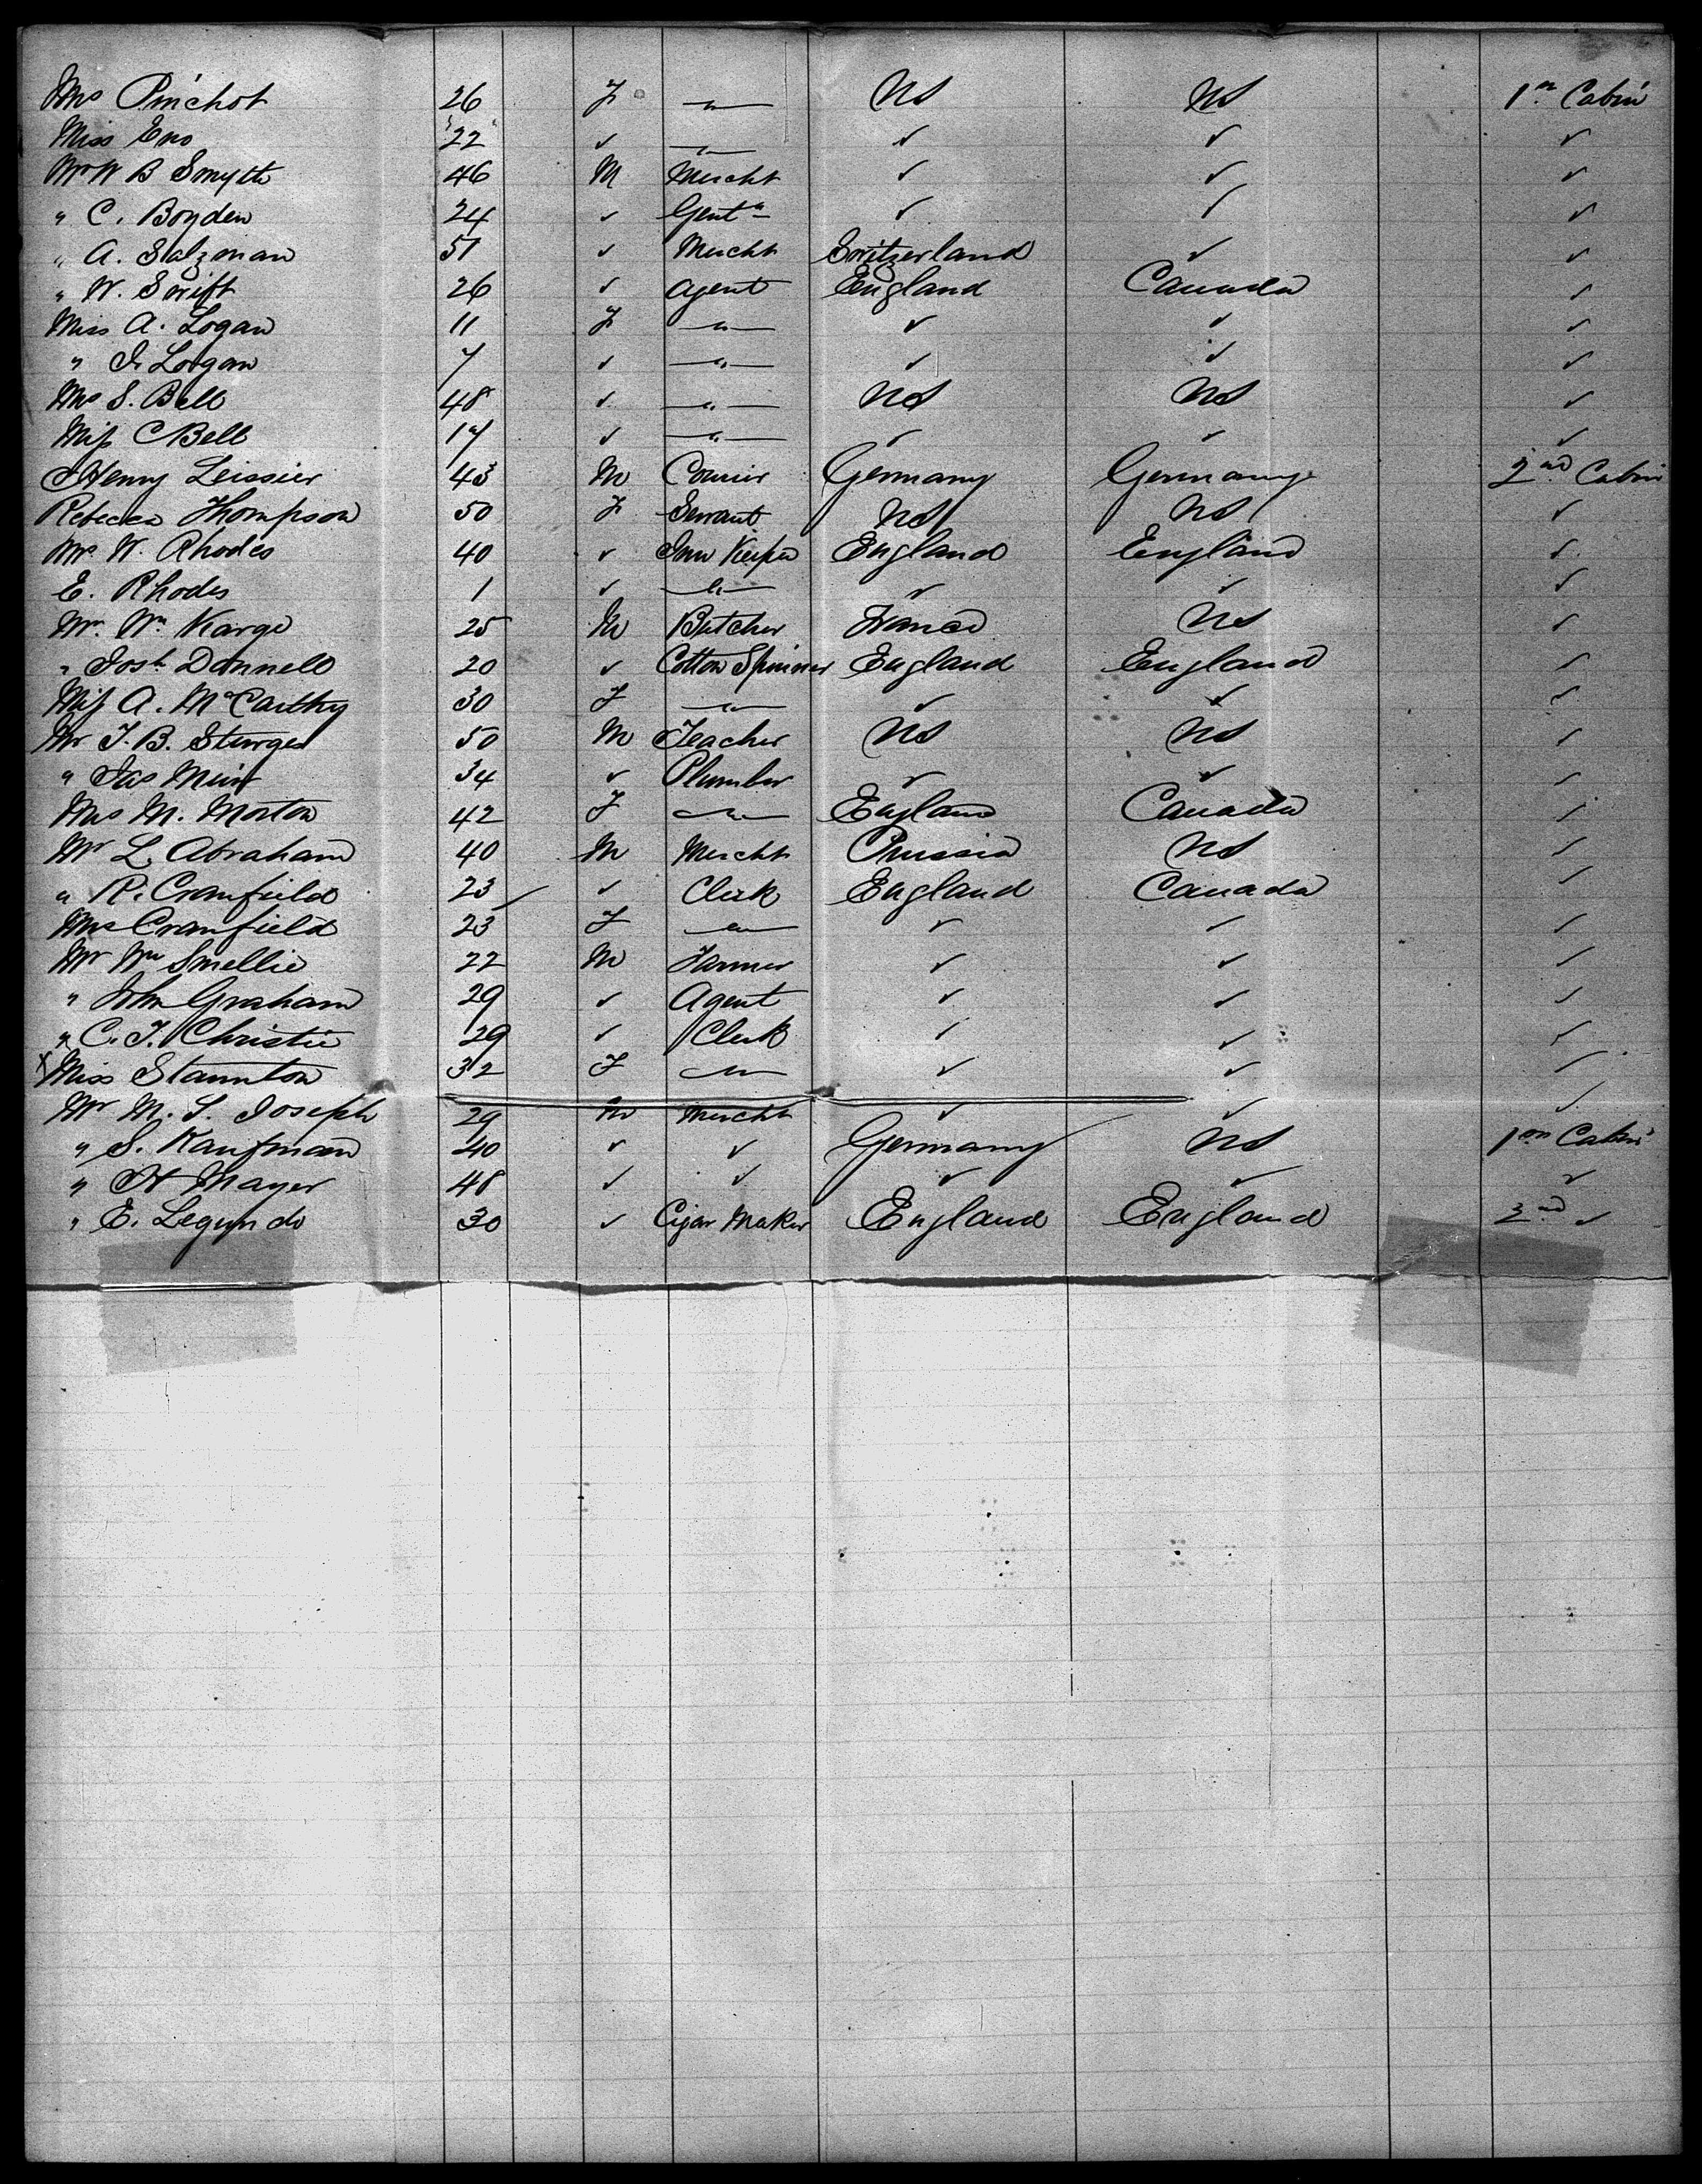 Mrs Pinchot 26 F —"— US US 1st Cabin
Miss Eno 22 ✓ —"— ✓ ✓ ✓
Mr W B Smyth 46 M Mercht ✓ ✓ ✓
" C. Boyden 24 ✓ Gentn ✓ ✓ ✓
" A. Salzman 51 ✓ Mercht Switzerland ✓ ✓
" W. Swift 26 ✓ Agent England Canada ✓
Miss A. Logan 11 F —"— ✓ ✓ ✓
" I. Logan 7 ✓ —"— ✓ ✓ ✓
Mrs S. Bell 48 ✓ —"— US US ✓
Miss C Bell 17 ✓ —"— ✓ ✓ ✓
Henry Leissier 43 M Courier Germany Germany 2nd Cabin
Rebecca Thompson 50 F Servant US US ✓
Mrs W. Rhodes 40 ✓ Inn Keeper England England ✓
E. Rhodes 1 ✓ —"— ✓ ✓ ✓
Mr. Wm Karge 25 M Butcher France US ✓
" Josh Donnell 20 ✓ Cotton Spinner England England ✓
Miss A. McCarthy 30 F —"— ✓ ✓ ✓
Mr T. B. Sturges 50 M Teacher US US ✓
" Jas Muir 34 ✓ Plumber ✓ ✓ ✓
Mrs M. Morton 42 F —"— England Canada ✓
Mr L. Abraham 40 M Mercht Prussia US ✓
" R. Cranfield 23 ✓ Clerk England Canada ✓
Mrs Cranfield 23 F —"— ✓ ✓ ✓
Mr Wm Smellie 22 M Farmer ✓ ✓ ✓
" John Graham 29 ✓ Agent ✓ ✓ ✓
" C. T. Christie 29 ✓ Clerk ✓ ✓ ✓
x Miss Staunton 32 F —"— ✓ ✓ ✓
Mr M. S. Joseph 29 M Mercht ✓ ✓ ✓
" S. Kaufman 40 ✓ ✓ Germany US 1st Cabin
" H Mayer 48 ✓ ✓ ✓ ✓ ✓
" E. Legundo 30 ✓ Cigar Maker England England 2nd ✓